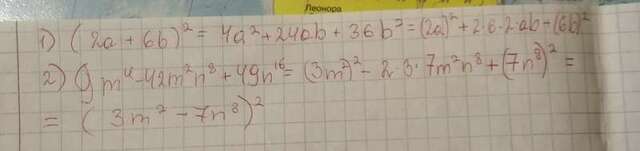 Леонора
1) (2a + 6b)² = 4a² + 24ab + 36b² = (2a)² + 2·6·2·ab + (6b)²
2) 9m⁴ - 42m²n⁸ + 49n¹⁶ = (3m²)² - 2·3·7m²n⁸ + (7n⁸)² =
= (3m² - 7n⁸)²